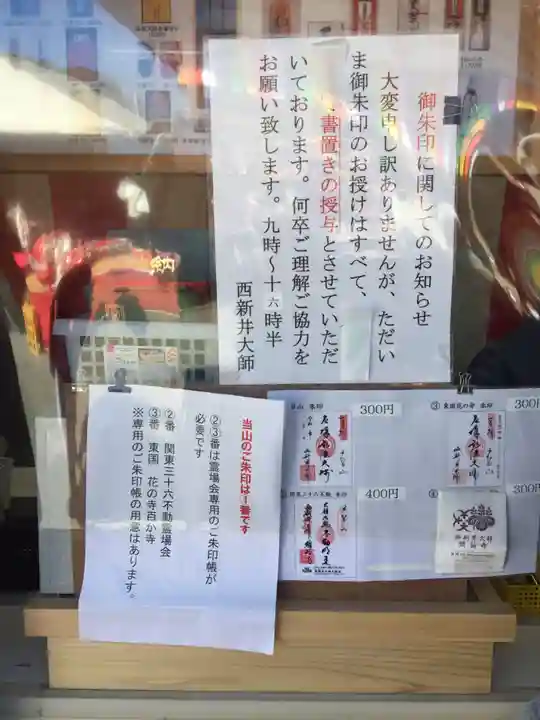 御朱印に関してのお知らせ
大変申し訳ありませんが、ただい
ま御朱印のお授けはすべて、
書置きの授与とさせていただ
いております。何卒ご理解ご協力を
お願い致します。九時～十六時半
西新井大師
当山のご朱印は1番です
②③番は霊場会専用のご朱印帳が
必要です
②番 関東三十六不動霊場会
③番 東国 花の寺百か寺
※専用のご朱印帳の用意はあります。
300円
③ 東国花の寺 朱印
300円
関東三十六不動 朱印
400円
④
300円
納